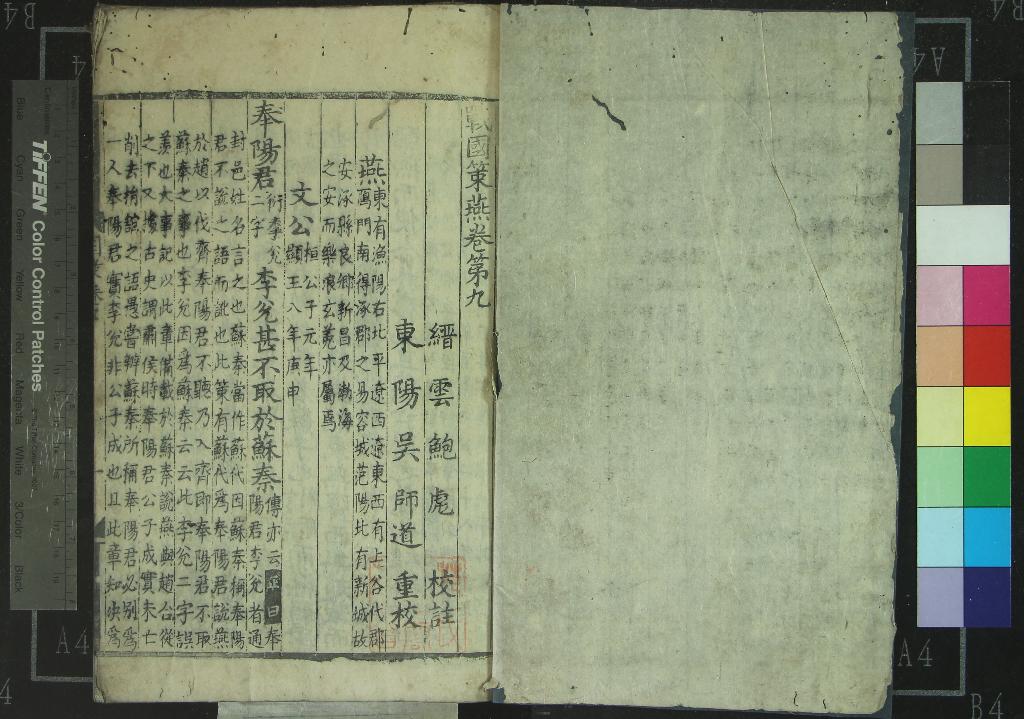 戰國策燕卷第九
縉雲鮑彪校註
東陽吳師道重校
燕東有漁陽右北平遼西遼東西有上谷代郡
鴈門南得涿郡之易容城范陽北有新城故
安涿縣良鄉新昌及渤海
之安而樂浪玄菟亦屬焉
文公桓公子元年
顯王八年庚申
奉陽君衍奉兊二字李兊甚不取於蘇秦傳亦云正曰奉陽君李兊者通
封邑姓名言之也蘇秦當作蘇代因蘇秦稱奉陽
君不說之語而訛也此策有蘇代爲奉陽君說燕
於趙以伐齊奉陽君不聽乃入齊即奉陽君不取
蘇秦之事也李兊因爲蘇秦云云此李兊二字誤
羨也大事記以此章備載於蘇秦說燕與趙合從
之下又據古史謂肅侯時奉陽君公子成實未亡
削去捐館之語愚嘗辯蘇秦所稱奉陽君必別爲
一人奉陽君實李兊非公子成也且此章知決爲
TIFFEN Color Control Patches
Blue Cyan Green Yellow Red Magenta White 3/Color Black
B4
A4
A4
A4
B4